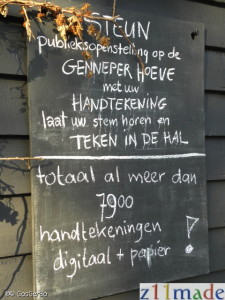 STEUN
publieksopenstelling op de
GENNEPER HOEVE
met uw
HANDTEKENING
laat uw stem horen en
TEKEN IN DE HAL
totaal al meer dan
7900
handtekeningen
digitaal + papier !
© GasGerGo
z11made